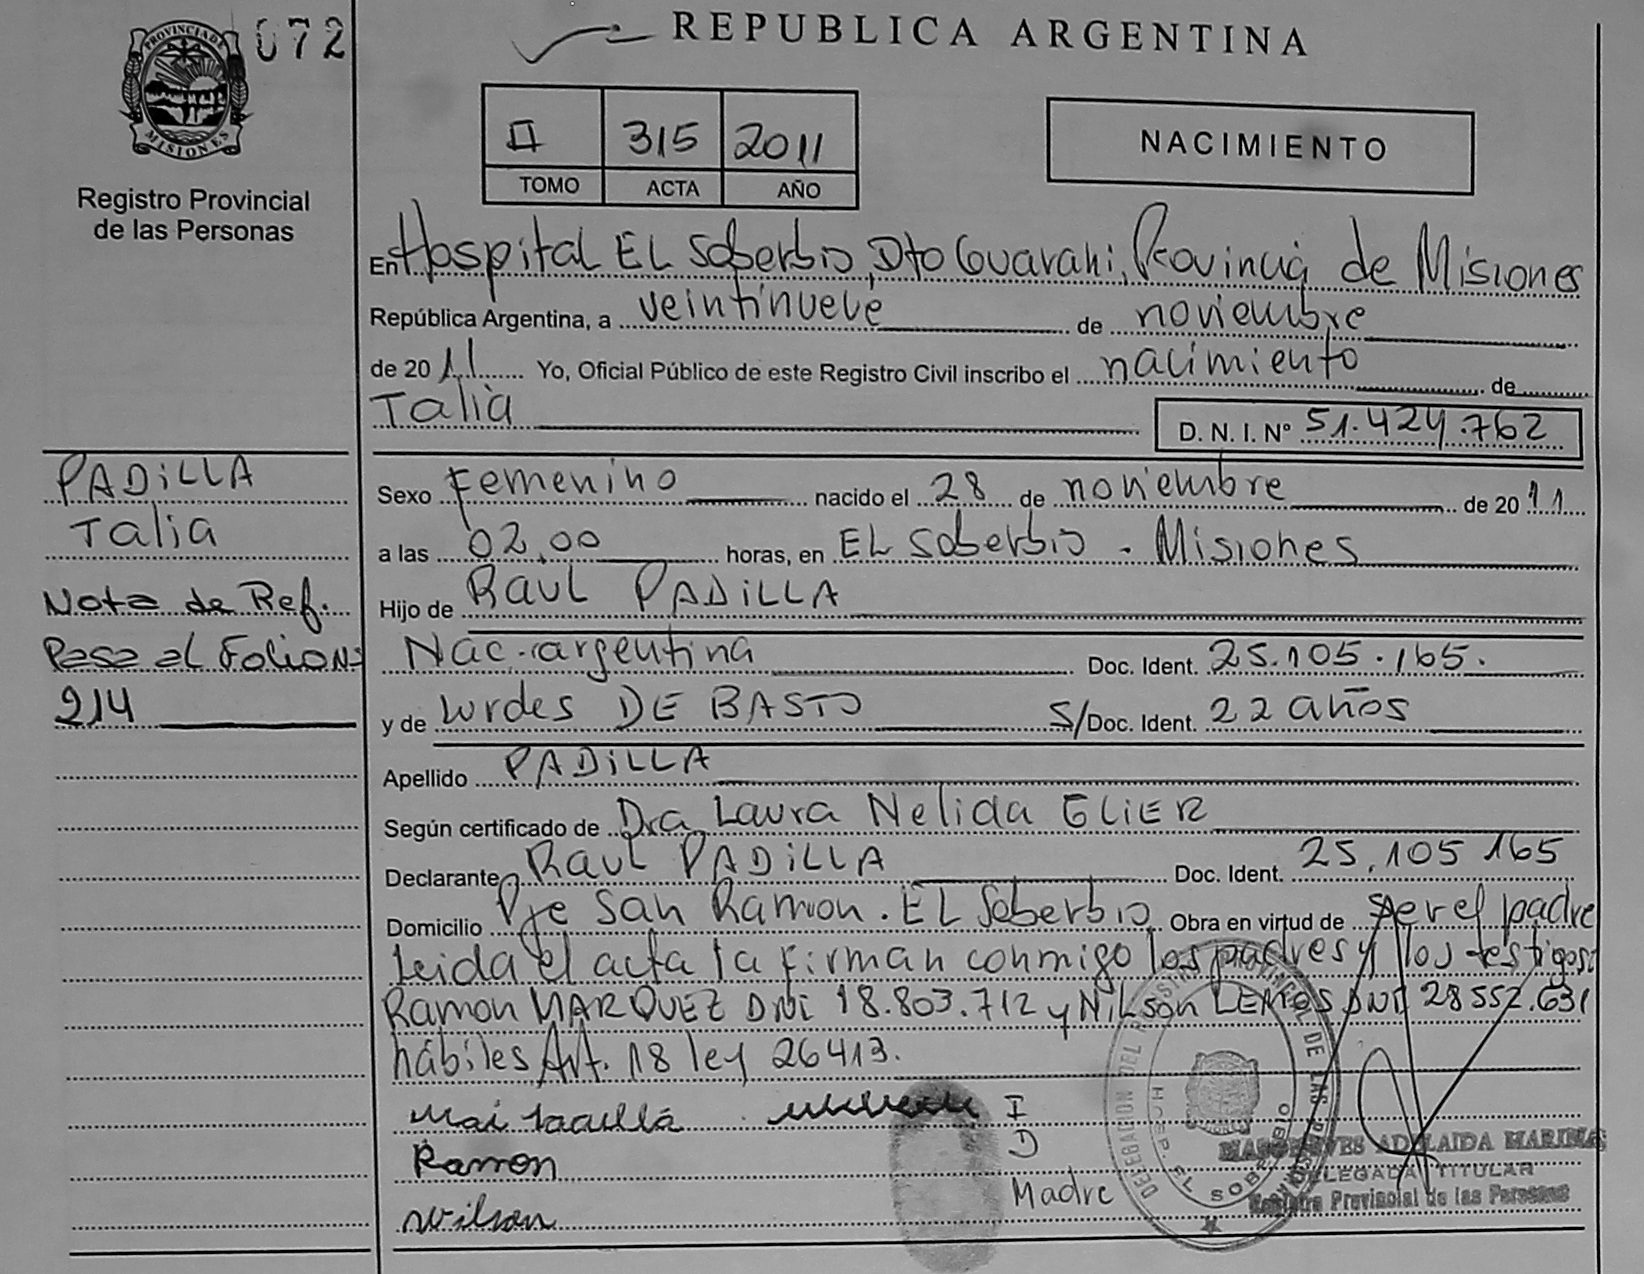 072
REPUBLICA ARGENTINA
PROVINCIA DE
MISIONES
Registro Provincial
de las Personas
II 315 2011
TOMO ACTA AÑO
NACIMIENTO
En Hospital EL Soberbio, Dto Guarani, Provincia de Misiones
República Argentina, a veintinueve de noviembre
de 2011 Yo, Oficial Público de este Registro Civil inscribo el nacimiento de
Talia
D. N. I. Nº 51.424.762
PADILLA
Talia
Nota de Ref.
Pasa al Folio Nº
214
Sexo Femenino nacido el 28 de noviembre de 2011
a las 02,00 horas, en EL Soberbio - Misiones
Hijo de Raul PADILLA
Nac. argentina Doc. Ident. 25.105.165.
y de Lurdes DE BASTO S/Doc. Ident. 22 años
Apellido PADILLA
Según certificado de Dra Laura Nelida GLIER
Declarante Raul PADILLA Doc. Ident. 25.105 165
Domicilio Pje San Ramon. EL Soberbio Obra en virtud de ser el padre
Leida el acta la firman conmigo los padres y los testigos
Ramon MARQUEZ DNI 18.803.712 y Nilson LEMOS DNI 28 552.631
hábiles Art. 18 ley 26413.
I
D
Madre
Ramon
Wilson
DELEGACION DEL REGISTRO PROVINCIAL DE LAS PERSONAS
EL SOBERBIO
ADELAIDA MARINA
DELEGADA TITULAR
Registro Provincial de las Personas